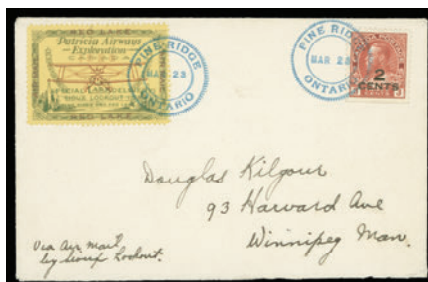 RED LAKE
Patricia Airways
Exploration
SPECIAL
SIOUX LOOKOUT
RED LAKE
PINE RIDGE
MAR 23
ONTARIO
PINE RIDGE
MAR 23
ONTARIO
2
CENTS
Douglas Kilgour
93 Harvard Ave
Winnipeg Man.
Via Air Mail
by Sioux Lookout.